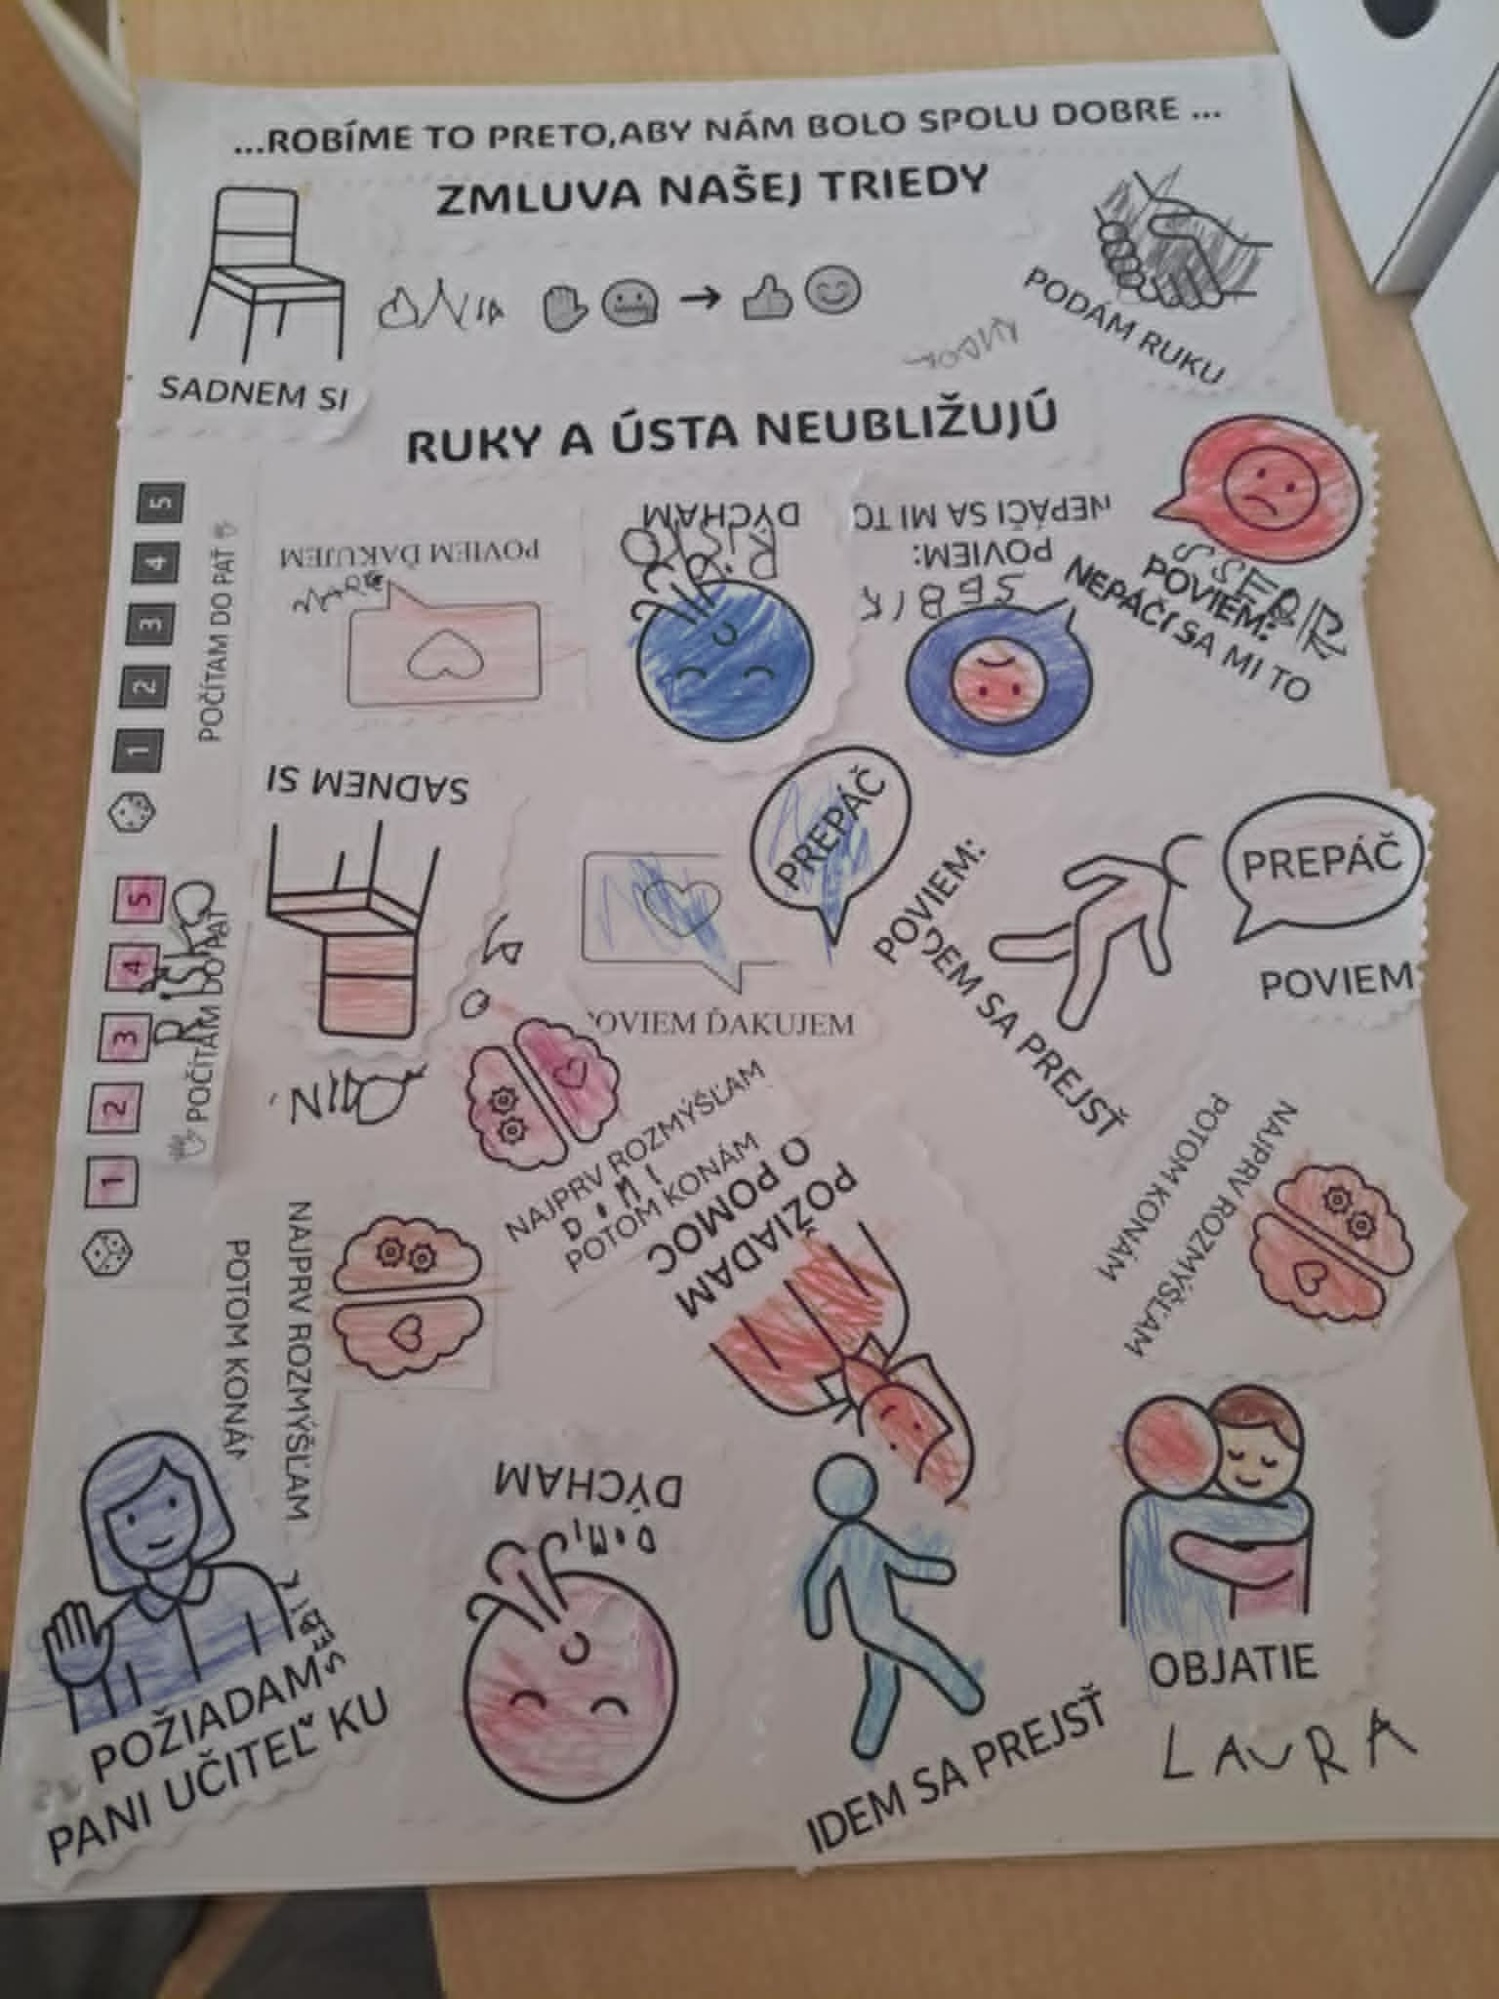 ...ROBÍME TO PRETO,ABY NÁM BOLO SPOLU DOBRE ...
ZMLUVA NAŠEJ TRIEDY
SADNEM SI
PODÁM RUKU
RUKY A ÚSTA NEUBLIŽUJÚ
1 2 3 4 5
POČÍTAM DO PÄŤ
POVIEM ĎAKUJEM
DÝCHAM
RIŠKO
POVIEM:
NEPÁČI SA MI TO
SEBIK
POVIEM:
NEPÁČI SA MI TO
SADNEM SI
PREPÁČ
POVIEM:
PREPÁČ
POVIEM
1 2 3 4 5
POČÍTAM DO PÄŤ
RIŠKO
POVIEM ĎAKUJEM
IDEM SA PREJSŤ
NAJPRV ROZMÝŠĽAM
DOMI
POTOM KONÁM
POŽIADAM
O POMOC
NAJPRV ROZMÝŠĽAM
POTOM KONÁM
NAJPRV ROZMÝŠĽAM
POTOM KONÁM
DÝCHAM
DOMI
POŽIADAM
PANI UČITEĽKU
SEBIK
IDEM SA PREJSŤ
OBJATIE
LAURA